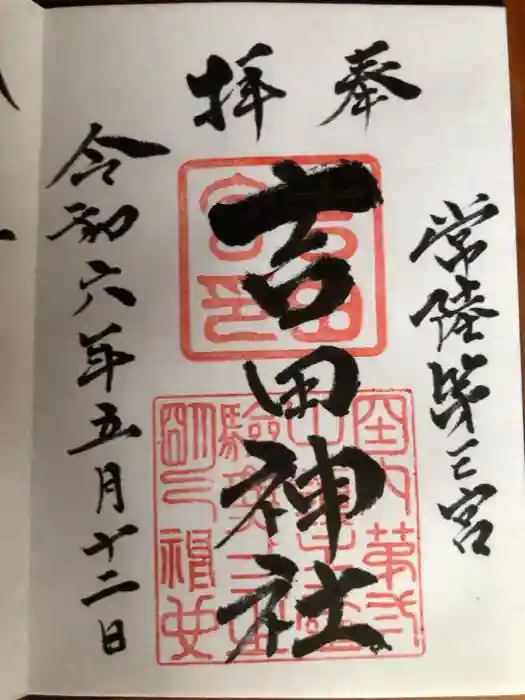 奉拝
常陸第三宮
吉田神社
令和六年五月十二日